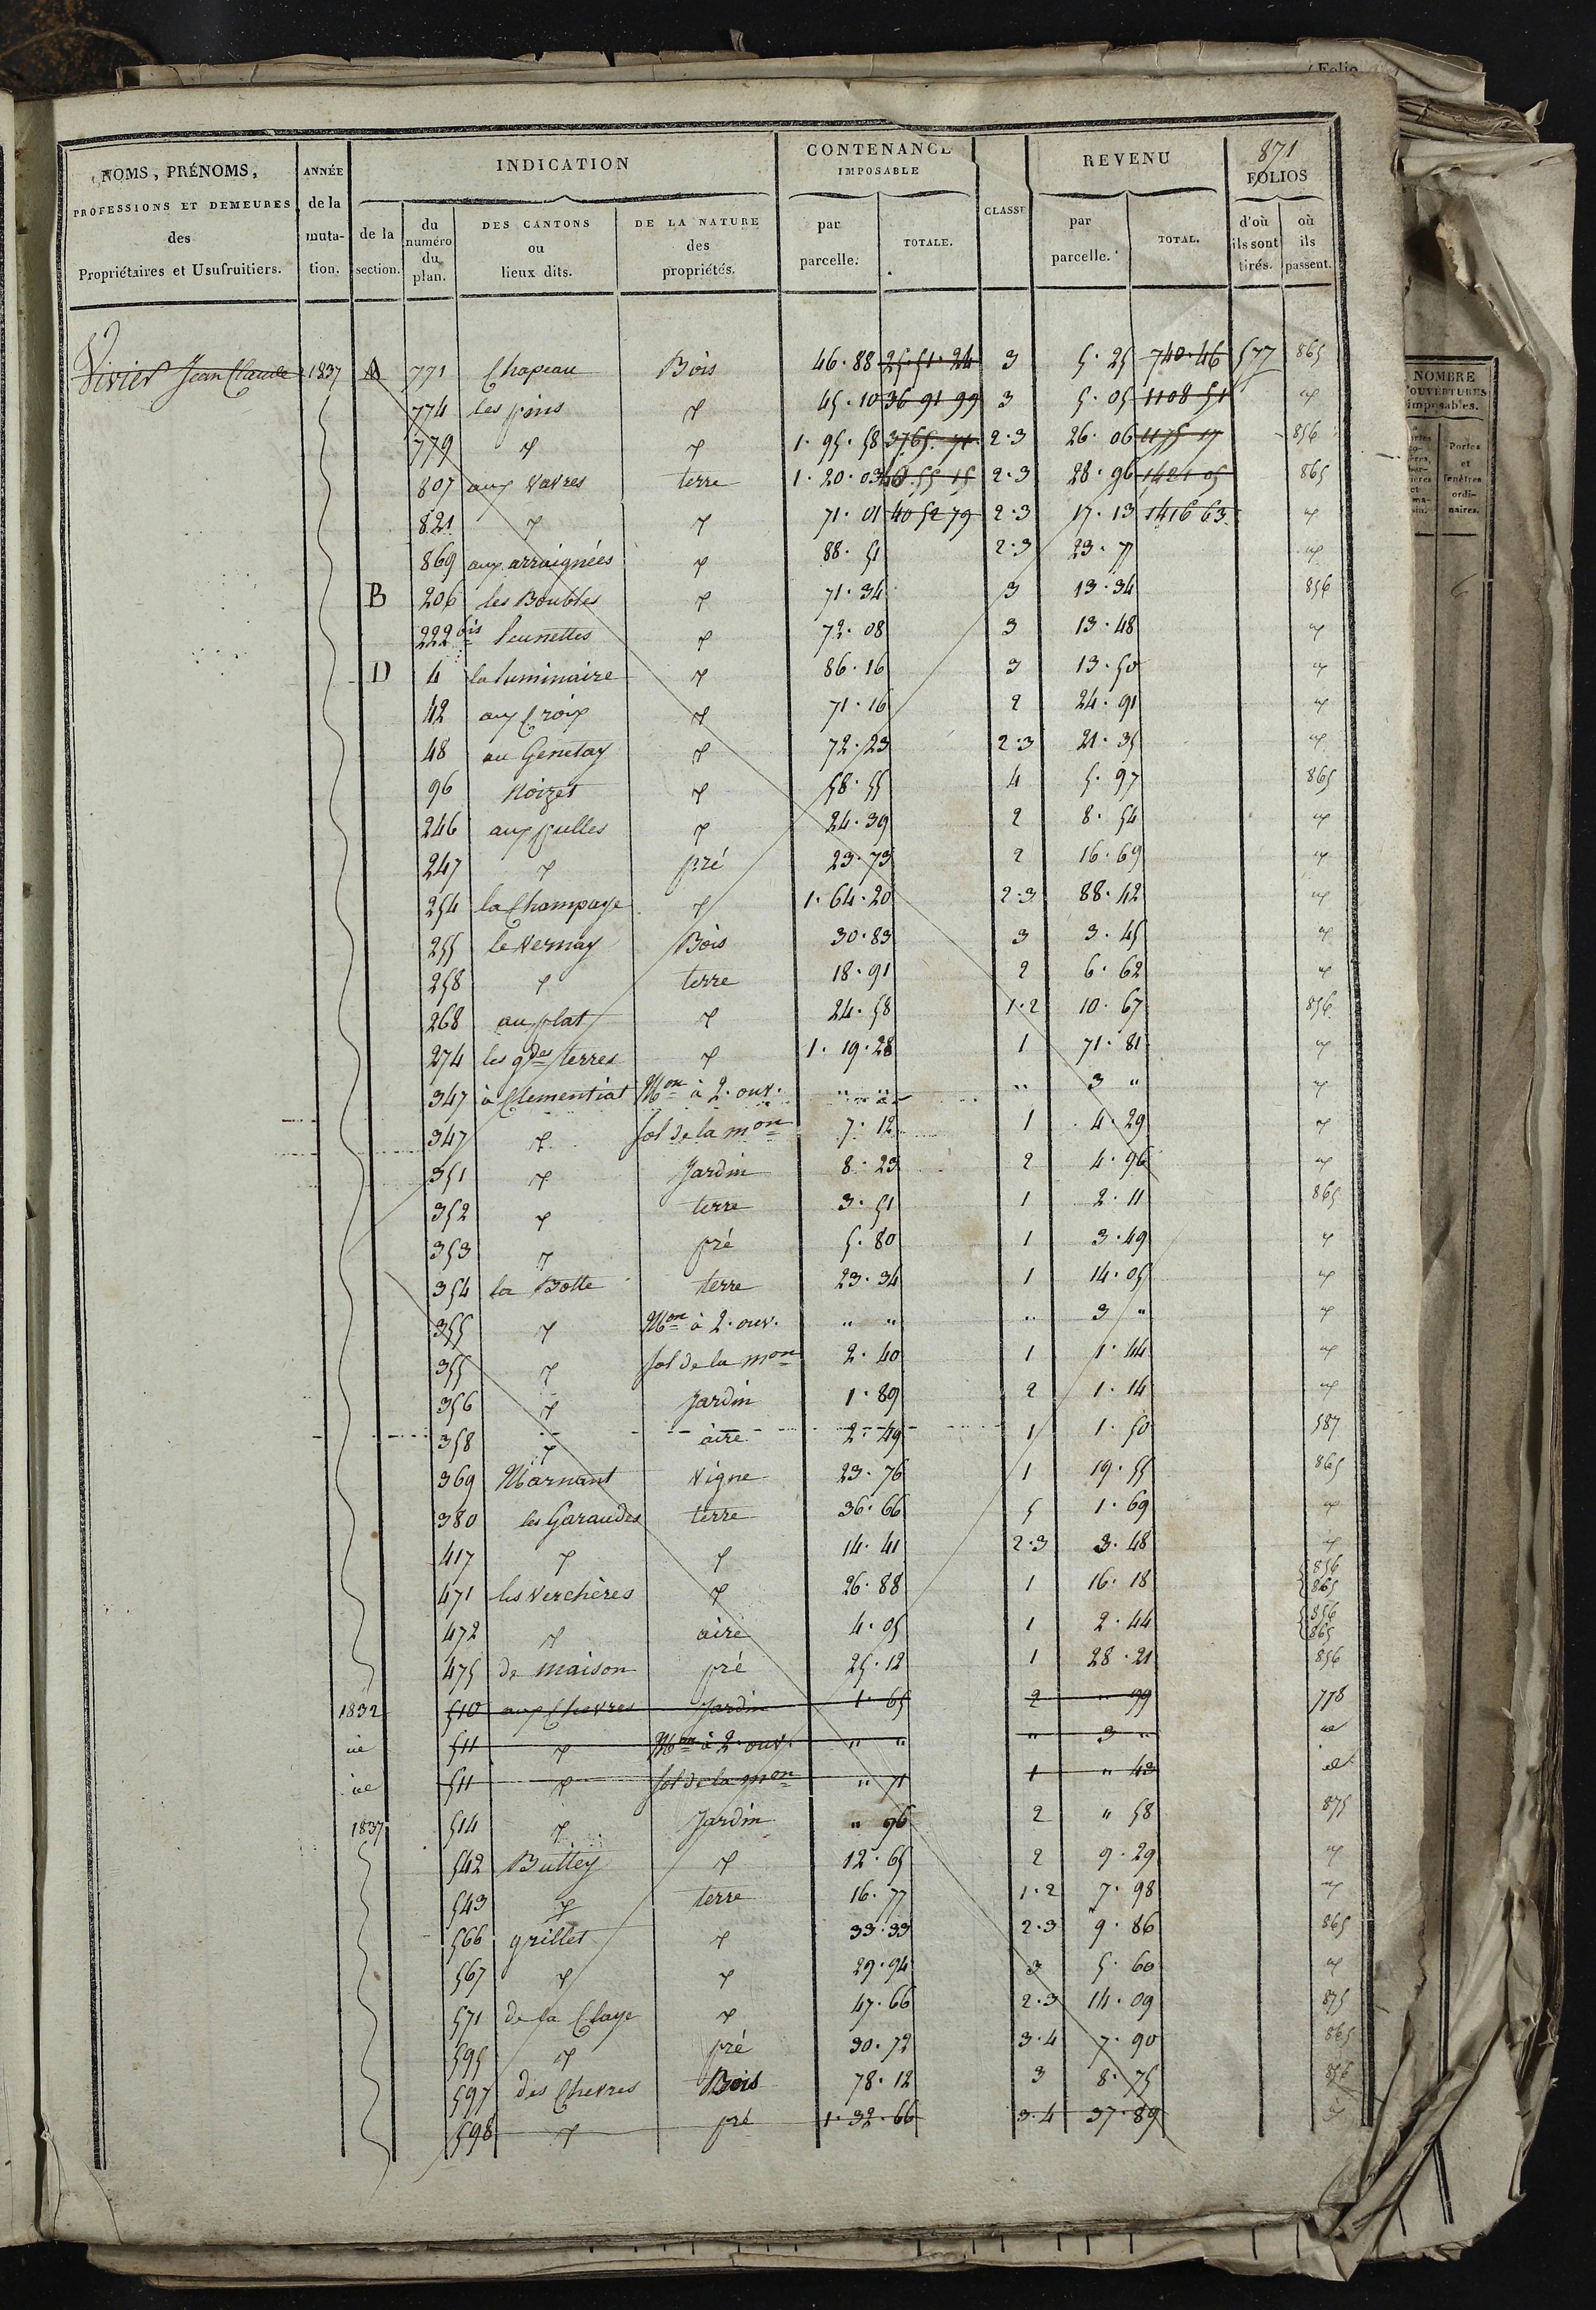 Folio
871
NOMS, PRÉNOMS, PROFESSIONS ET DEMEURES des Propriétaires et Usufruitiers.
ANNÉE de la mutation.
INDICATION
de la section.
du numéro du plan.
DES CANTONS ou lieux dits.
DE LA NATURE des propriétés.
CONTENANCE IMPOSABLE
par parcelle.
TOTALE.
CLASSE
REVENU
par parcelle.
TOTAL.
FOLIOS
d'où ils sont tirés.
où ils passent.
Vivier Jean Claude 1837 A 771 Chapeau Bois 46.88 25.51.24 3 5.25 740.46 577 865
774 les pins " 45.10 36 91 99 3 5.05 1108 51 "
779 " " 1.95.58 3765.71 2.3 26.06 1175 17 856
807 aux Vavres terre 1.20.03 2.3 28.96 1421 05 865
821 " " 71.01 40 52 79 2.3 17.13 1416 63 "
869 aux arraignées " 88.51 2.3 23.77 "
B 206 les Boubles " 71.34 3 13.34 856
222 bis " 72.08 3 13.48 "
D 4 la luminaire " 86.16 3 13.50 "
42 aux Croix " 71.16 2 24.91 "
48 au Genetay " 72.23 2.3 21.35 "
96 Noizet " 58.55 4 5.97 865
246 aux " 24.39 2 8.54 "
247 " pré 23.73 2 16.69 "
254 la Champaye " 1.64.20 2.3 88.42 "
255 le Vernay Bois 30.83 3 3.45 "
258 " terre 18.91 2 6.62 "
268 au plat " 24.58 1.2 10.67 856
274 les gdes terres " 1.19.28 1 71.81 "
347 à Clementiat Mon à 2. ouv. " " " 3 " "
347 " sol de la mon 7.12 1 4.29 "
351 " Jardin 8.23 2 4.96 "
352 " terre 3.51 1 2.11 865
353 " pré 5.80 1 3.49 "
354 la Botte terre 23.34 1 14.05 "
355 " Mon à 2. ouv. " " " 3 " "
355 " sol de la mon 2.40 1 1.44 "
356 " Jardin 1.89 2 1.14 "
358 " aire 2.49 1 1.50 587
369 Marnant Vigne 23.76 1 19.55 865
380 les Garaudes terre 36.66 5 1.69 "
417 " " 14.41 2.3 3.48 "
471 les Verchères " 26.88 1 16.18 856 865
472 " aire 4.05 1 2.44 856 865
475 de maison pré 25.12 1 28.21 856
1832 510 aux Chevres Jardin 1.65 2 " 99 778
id 511 " Mon à 2. ouv. " " " 3 " id
id 511 " sol de la mon " 71 1 " 43 id
1837 514 " Jardin " 96 2 " 58 875
542 Buttey " 12.65 2 9.29 "
543 " terre 16.77 1.2 7.98 "
566 grillet " 33.33 2.3 9.86 865
567 " " 29.94 3 5.60 "
571 de la Claye " 47.66 2.3 14.09 875
595 " pré 30.72 3.4 7.90 865
597 des Chevres Bois 78.12 3 8.75 856
598 " pré 1.32.66 3.4 37.89 "
NOMBRE D'OUVERTURES imposables.
Portes et fenêtres ordinaires.